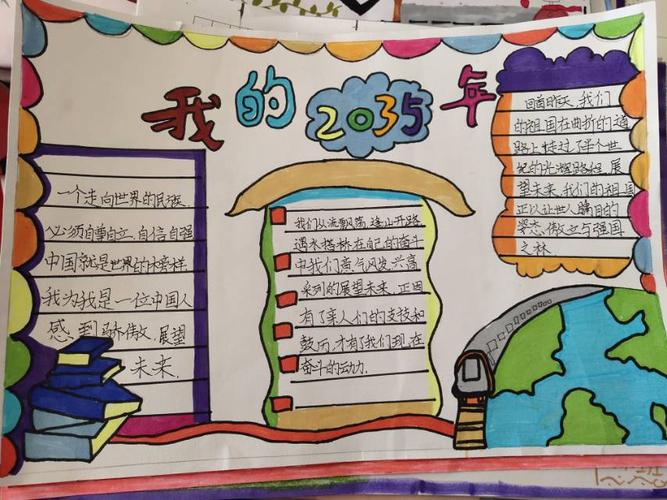 我的2035年
一个走向世界的民族,
必须自尊自立,自信自强
中国就是世界的榜样
我为我是一位中国人
感到骄傲,展望
未来.
我们从流飘荡,逢山开路
遇水搭桥在自己的奋斗
中我们意气风发,兴高
采烈的展望未来,正因
有了亲人们的支技和
鼓历,才有了我们现在
奋斗的动力.
回首昨天,我们
的祖国在曲折的道
路上走过了半个世
纪的光辉路程,展
望未来,我们的祖国
正以让世人瞩目的
姿态,傲立与强国
之林.